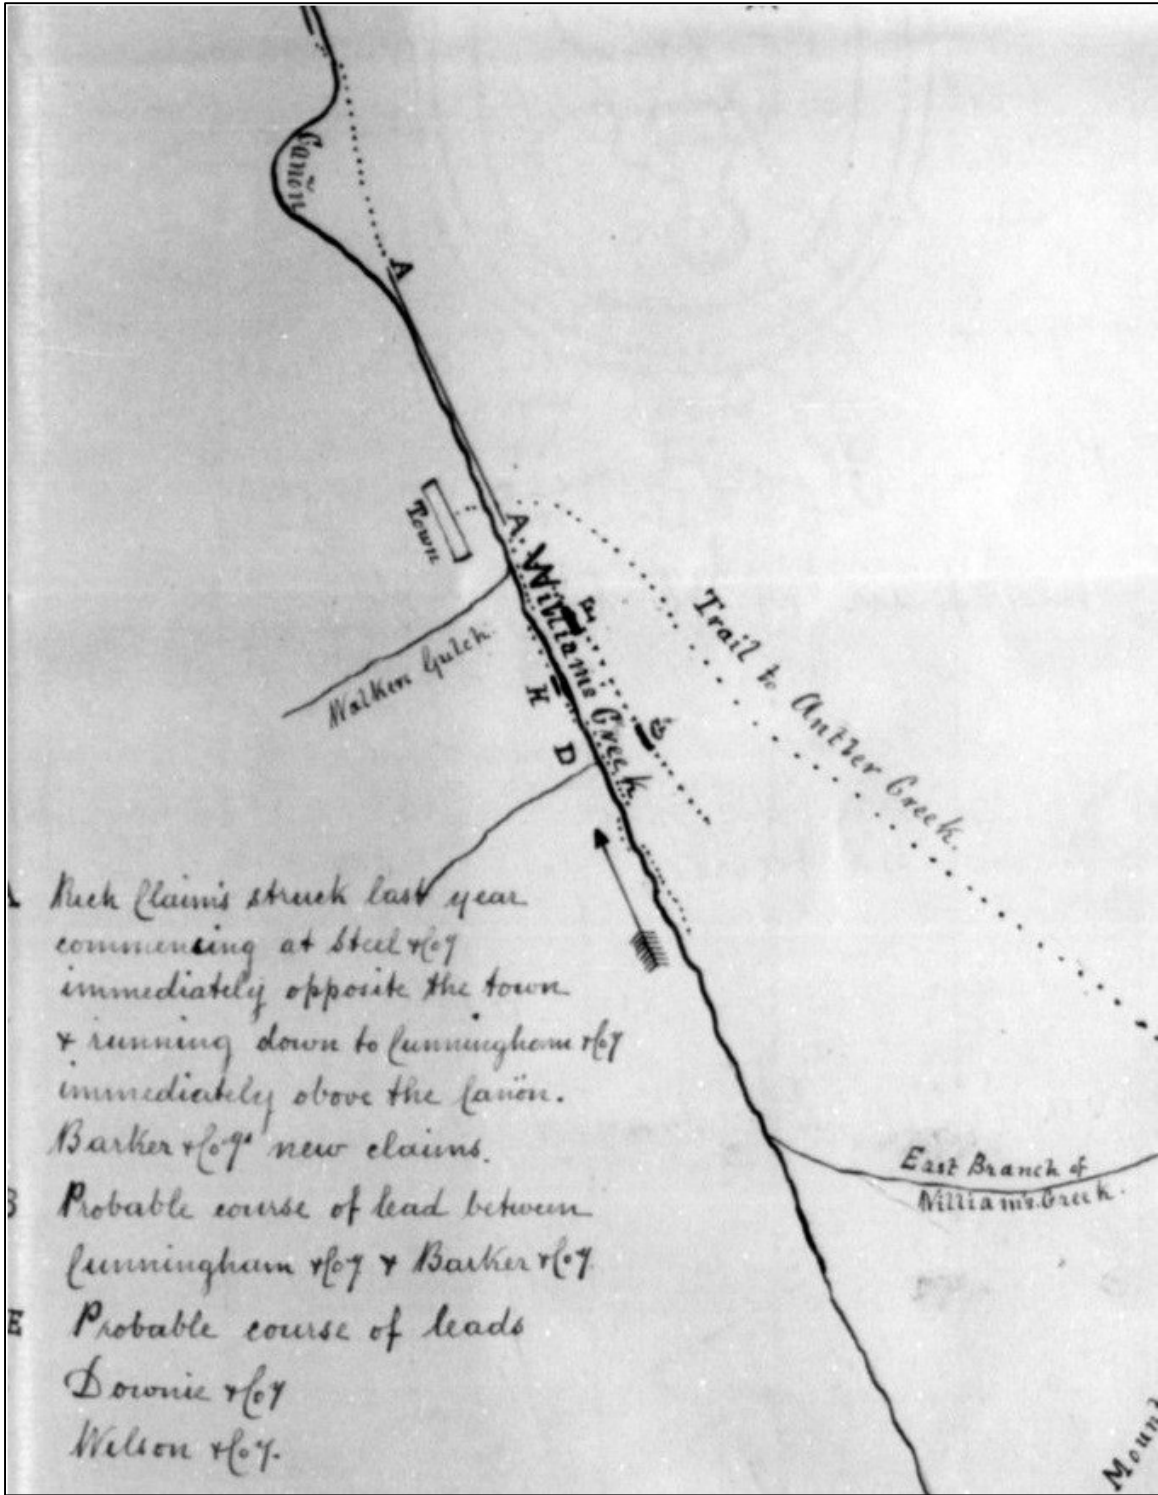 Cañon
A
Town
A.
Williams Creek
Walkers Gulch.
H
D
Trail to Antler Creek.
A Rich Claims struck last year
commencing at Steel & Coy
immediately opposite the town
& running down to Cunningham & Coy
immediately above the Cañon.
Barker & Coys new claims.
B Probable course of lead between
Cunningham & Coy & Barker & Coy
E Probable course of leads
Downie & Coy
Wilson & Coy.
East Branch of
William's Creek.
Mount